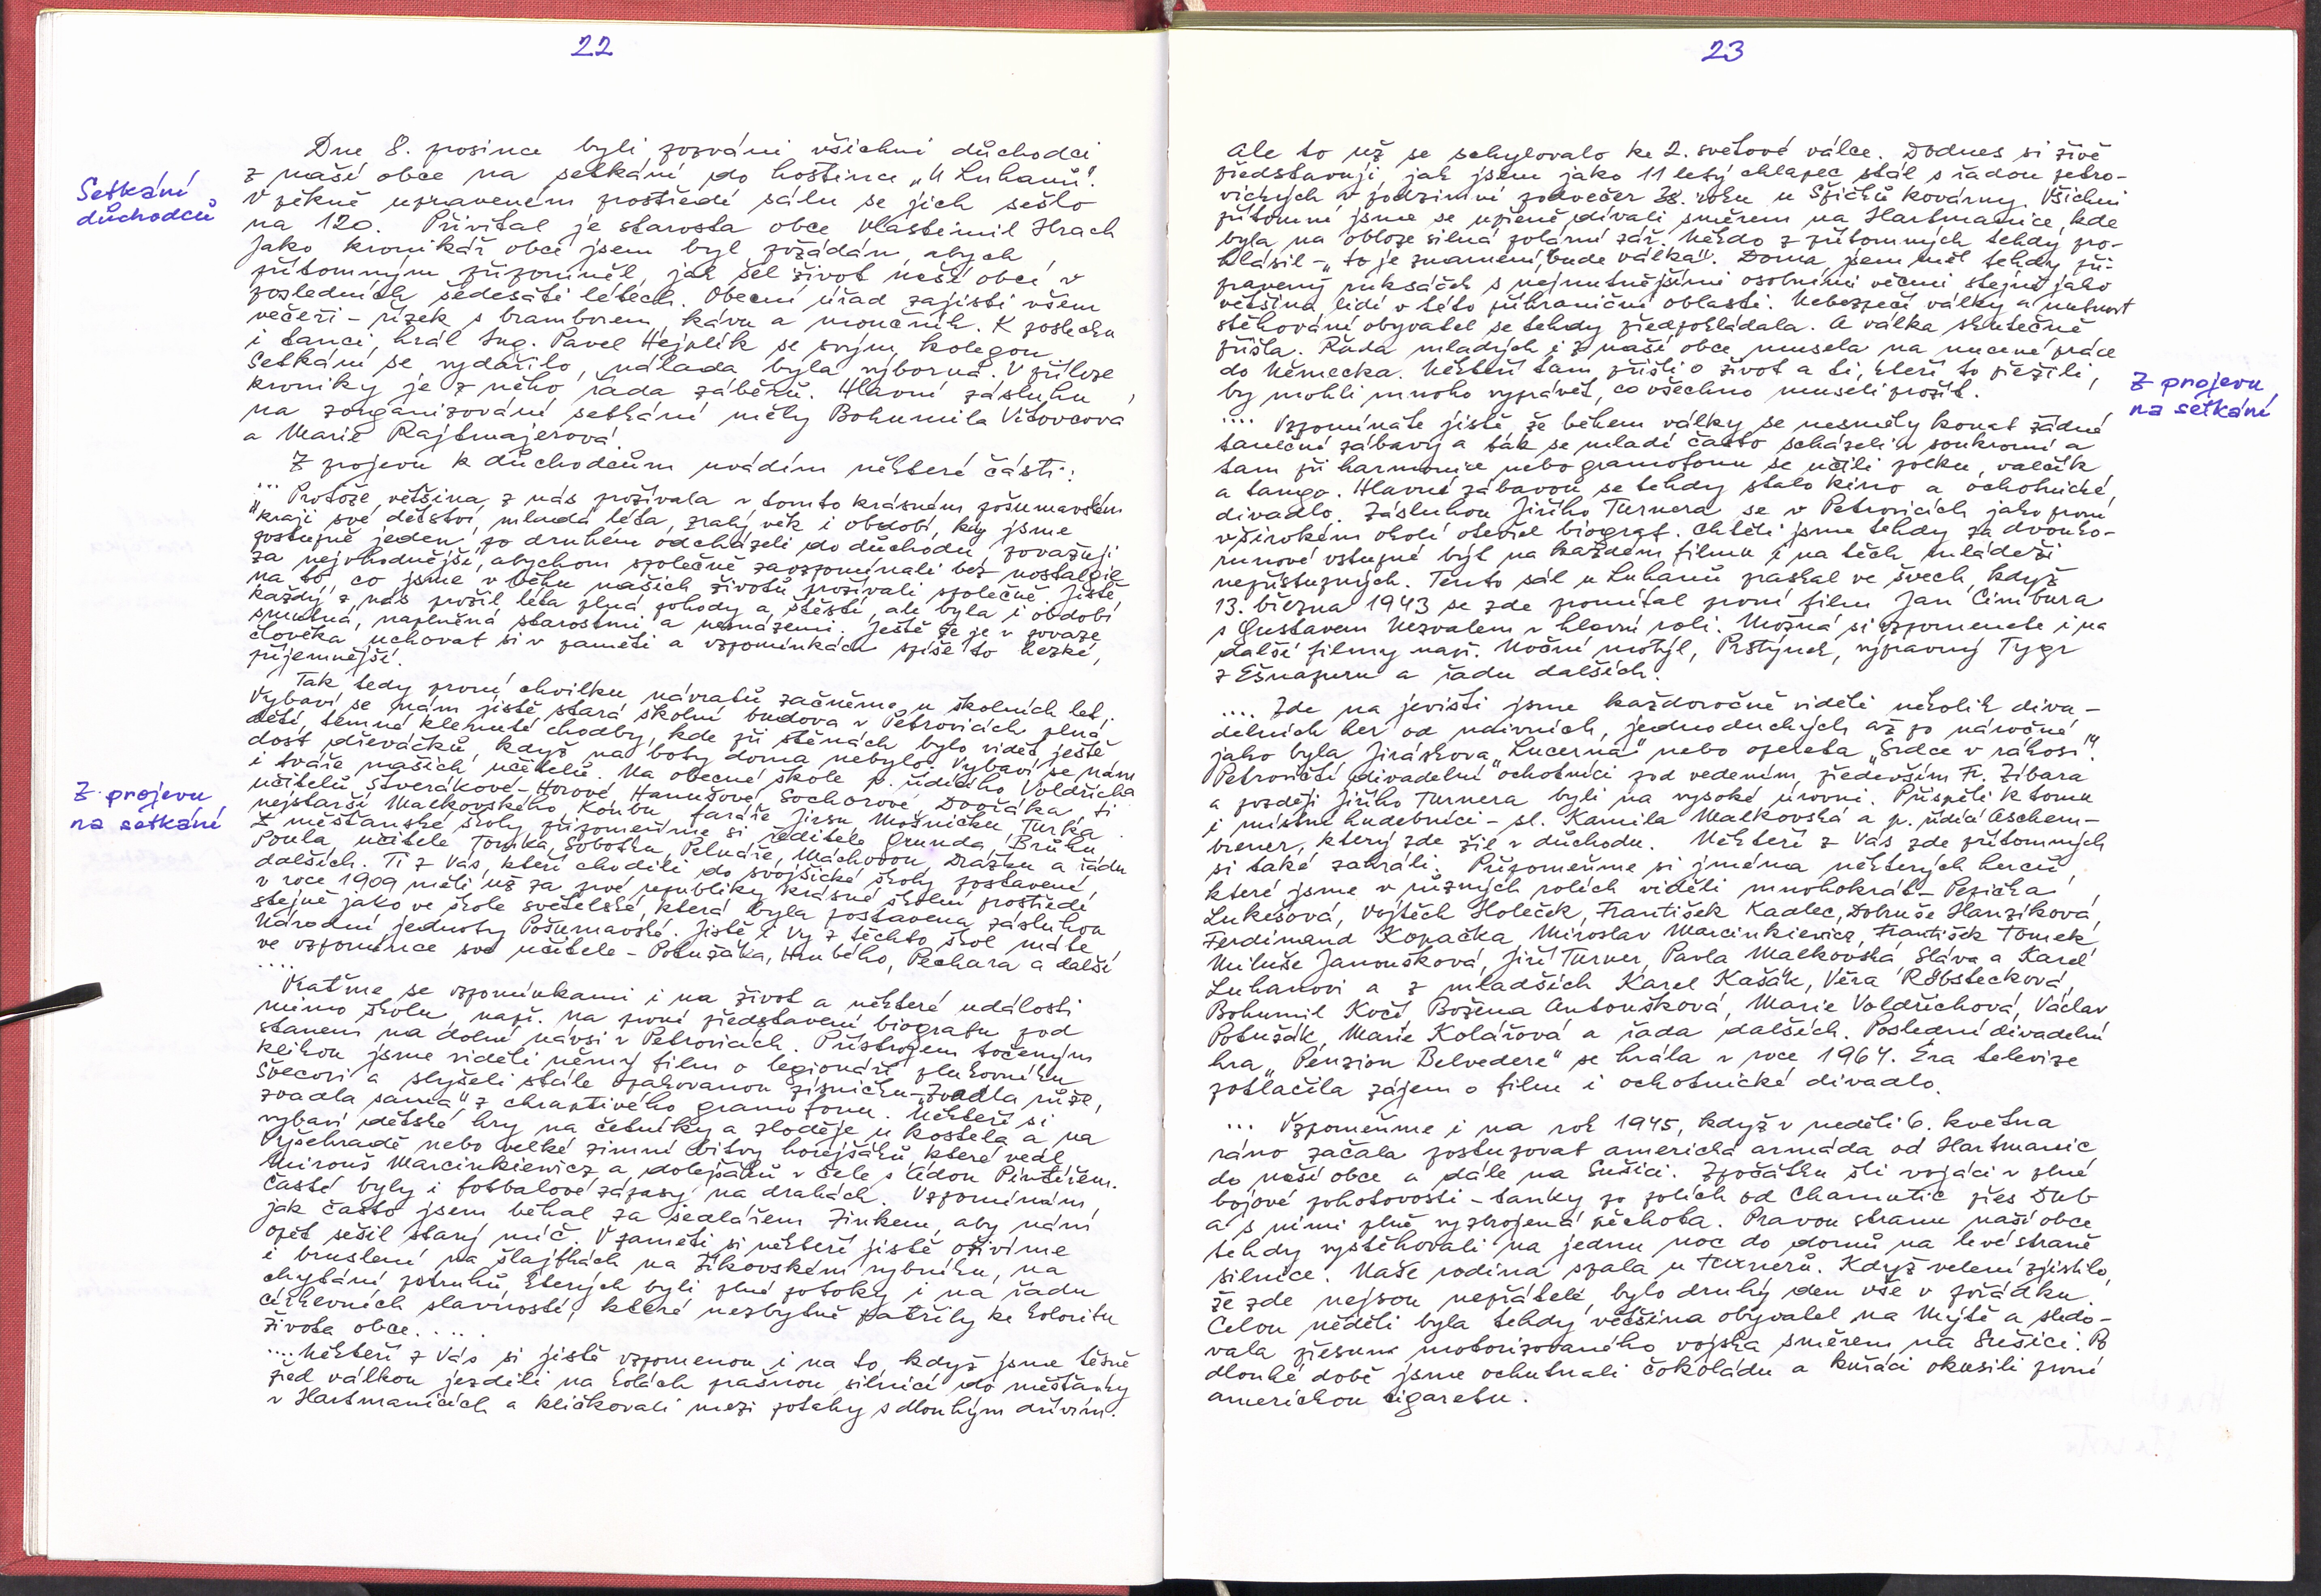 22
Setkání
důchodců
Dne 8. prosince byli pozváni všichni důchodci
z naší obce na setkání do hostince „U Luhanů“.
V pěkně upraveném prostředí sálu se jich sešlo
na 120. Přivítal je starosta obce Vlastimil Hrach
Jako kronikář obce jsem byl požádán, abych
přítomným připomněl, jak šel život naší obcí v
posledních šedesáti létech. Obecní úřad zajistil všem
večeři – řízek s bramborem, kávu a moučník. K poslechu
i tanci hrál Ing. Pavel Hejplík se svým kolegou.
Setkání se vydařilo, nálada byla výborná. V příloze
kroniky je z něho řada záběrů. Hlavní zásluhu
na zorganizování setkání měly Bohumila Vítovcová
a Marie Rajtmajerová.
Z projevu k důchodcům uvádím některé části:
... Protože většina z nás prožívala v tomto krásném pošumavském
kraji své dětství, mladá léta, zralý věk i období, kdy jsme
postupně jeden po druhém odcházeli do důchodu, považuji
za nejvhodnější, abychom společně zavzpomínali bez nostalgie
na to, co jsme v běhu našich životů prožívali společně. Jistě
každý z nás prožil léta plná pohody a štěstí, ale byla i období
smutná, naplněná starostmi a nesnázemi. Ještě že je v povaze
člověka uchovat si v paměti a vzpomínkách spíše to hezké,
příjemnější.
Tak tedy první chvilku návratů začněme u školních let.
Vybaví se nám jistě stará školní budova v Petrovicích plná
dětí, temné klenuté chodby, kde při stěnách bylo vidět ještě
dost dřeváčků, když na boty doma nebylo. Vybaví se nám
i tváře našich učitelů. Na obecné škole p. řídícího Voldřicha
učitelů Štverákové-Horové, Hanušové, Sochorové, Dvořáka, ti
nejstarší Malkovského, Koubu, faráře Jirsu, Mošničku, Turka.
Z měšťanské školy připomeňme si ředitele Grunda, Brůhu
Poula, učitele Tomka, Sobotku, Pelnáře, Máchovou, Dražku a řadu
dalších. Ti z Vás, kteří chodili do svojšické školy postavené
v roce 1909 měli už za prvé republiky krásné školní prostředí
stejně jako ve škole světelské, která byla postavena zásluhou
Národní jednoty Pošumavské. Jistě i Vy z těchto škol máte
ve vzpomínce své učitele – Potužáka, Hrubého, Pechara a další
....
Vraťme se vzpomínkami i na život a některé události
mimo školu, např. na první představení biografu pod
stanem na dolní návsi v Petrovicích. Přístrojem točeným
klikou jsme viděli němý film o legionáři plukovníku
Švecovi a slyšeli stále opakovanou písničku – „Zvadla růže,
zvadla sama“ z chraptivého gramofonu. Někteří si
vybaví dětské hry na četníky a zloděje u kostela a na
Vyšehradě nebo velké zimní bitvy hořejšáků, které vedl
Mirouš Marcinkiewicz a dolejšáků v čele s Láďou Pintířem.
Časté byly i fotbalové zápasy na drahách. Vzpomínám,
jak často jsem běhal za sedlářem Zinkem, aby nám
opět sešil starý míč. V paměti si někteří jistě oživíme
i bruslení na šlajfkách na Žikovském rybníku, na
chytání pstruhů, kterých byli plné potoky i na řadu
církevních slavností, které nezbytně patřily ke koloritu
života obce.....
....Někteří z Vás si jistě vzpomenou i na to, když jsme těsně
před válkou jezdili na kolách prašnou silnicí do měšťanky
v Hartmanicích a kličkovali mezi potahy s dlouhým dřívím.
Z projevu
na setkání
23
Ale to už se schylovalo ke 2. světové válce. Dodnes si živě
představuji, jak jsem jako 11 letý chlapec stál s řadou petro-
vických v podzimní podvečer 38. roku u Špičků kovárny. Všichni
přítomní jsme se upřeně dívali směrem na Hartmanice, kde
byla na obloze silná polární zář. Někdo z přítomných tehdy pro-
hlásil – „to je znamení, bude válka“. Doma jsem měl tehdy při-
pravený ruksáček s nejnutnějšími osobními věcmi stejně jako
většina lidí v této příhraniční oblasti. Nebezpečí války a nutnost
stěhování obyvatel se tehdy předpokládala. A válka skutečně
přišla. Řada mladých i z naší obce musela na nucené práce
do Německa. Někteří tam přišli o život a ti, kteří to přežili,
by mohli mnoho vyprávět, co všechno museli prožít.
.... Vzpomínáte jistě, že během války se nesměly konat žádné
taneční zábavy a tak se mladí často scházeli v soukromí a
tam při harmonice nebo gramofonu se učili polku, valčík
a tango. Hlavní zábavou se tehdy stalo kino a ochotnické
divadlo. Zásluhou Jiřího Turnera se v Petrovicích jako první
v širokém okolí otevřel biograf. Chtěli jsme tehdy za dvouko-
runové vstupné být na každém filmu i na těch mládeži
nepřístupných. Tento sál u Luhanů praskal ve švech, když
13. března 1943 se zde promítal první film Jan Cimbura
s Gustavem Nezvalem v hlavní roli. Možná si vzpomenete i na
další filmy např. Noční motýl, Prstýnek, výpravný Tygr
z Ešnapuru a řadu dalších.
.... Zde na jevišti jsme každoročně viděli několik diva-
delních her od naivních, jednoduchých až po náročné
jako byla Jiráskova „Lucerna“ nebo opereta „Srdce v rákosí“.
Petrovičtí divadelní ochotníci pod vedením především Fr. Žibara
a později Jiřího Turnera byli na vysoké úrovni. Přispěli k tomu
i místní hudebníci – sl. Kamila Malkovská a p. řídící Aschem-
brener, který zde žil v důchodu. Někteří z Vás zde přítomných
si také zahráli. Připomeňme si jména některých herců,
které jsme v různých rolích viděli mnohokrát – Pepička
Lukešová, Vojtěch Holeček, František Kadlec, Dobruše Hanzíková,
Ferdinand Kopačka, Miroslav Marcinkiewicz, František Tomek,
Miluše Janoušková, Jiří Turner, Pavla Malkovská, Sláva a Karel
Luhanovi a z mladších Karel Kašák, Věra Röbstecková,
Bohumil Kočí, Božena Antoušková, Marie Voldřichová, Václav
Potužák, Marie Kolářová a řada dalších. Poslední divadelní
hra „Penzion Belvedere“ se hrála v roce 1964. Éra televize
potlačila zájem o film i ochotnické divadlo.
... Vzpomeňme i na rok 1945, když v neděli 6. května
ráno začala postupovat americká armáda od Hartmanic
do naší obce a dále na Sušici. Zpočátku šli vojáci v plné
bojové pohotovosti – tanky po polích od Chamutic přes Dub
a s nimi plně vyzbrojená pěchota. Pravou stranu naší obce
tehdy vystěhovali na jednu noc do domů na levé straně
silnice. Naše rodina spala u Turnerů. Když velení zjistilo,
že zde nejsou nepřátelé, bylo druhý den vše v pořádku.
Celou neděli byla tehdy většina obyvatel na Mýtě a sledo-
vala přesun motorizovaného vojska směrem na Sušici. Po
dlouhé době jsme ochutnali čokoládu a kuřáci okusili první
americkou cigaretu.
Z projevu
na setkání